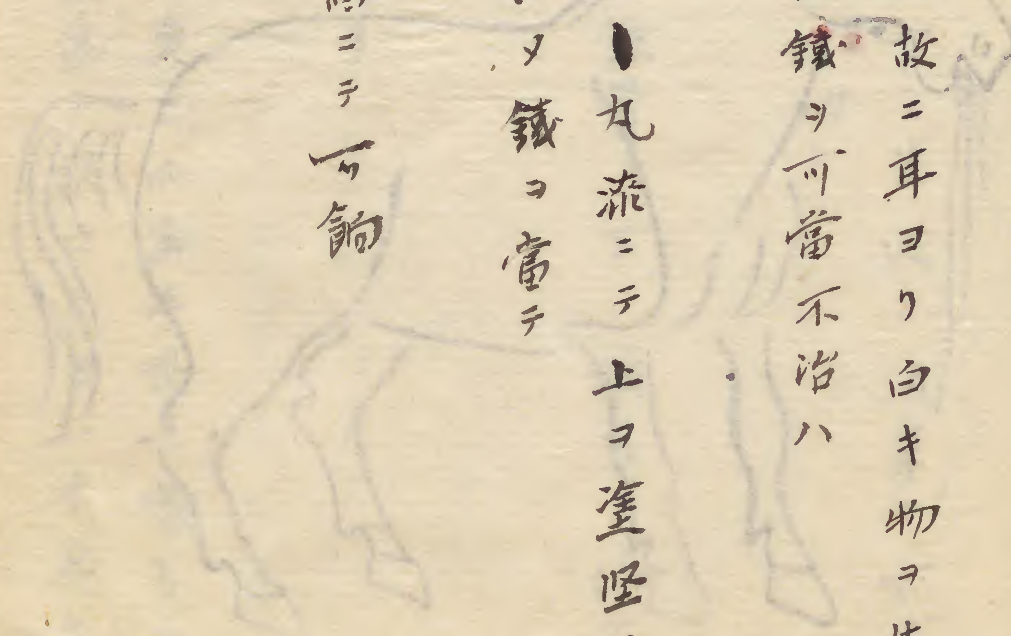 故ニ耳ヨリ白キ物ヲ
鐵ヲ可當不治ハ
丸漆ニテ上ヲ塗堅
メ鐵ヲ當テ
ニテ可餉